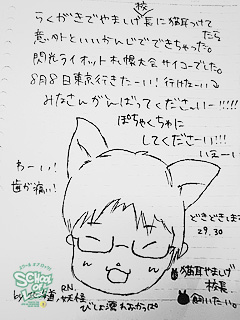 らくがきでやましげ校長に猫耳つけてたら
意外といいかんじでできちゃった。
閃光ライオット札幌大会サイコーでした。
8月8日東京行きたーい!行けなーいる
みなさんがんばってくださーい!!!!!
ぽちゃくちゃに
してくださーい!!!
いえーい
わーい!
歯が痛い!
どきどきします
29.30
猫耳やましげ
校長
飼いたい。
SCHOOL OF LOCK!
by
道
R.N.妖怪
びしょ濡れおかっぱ